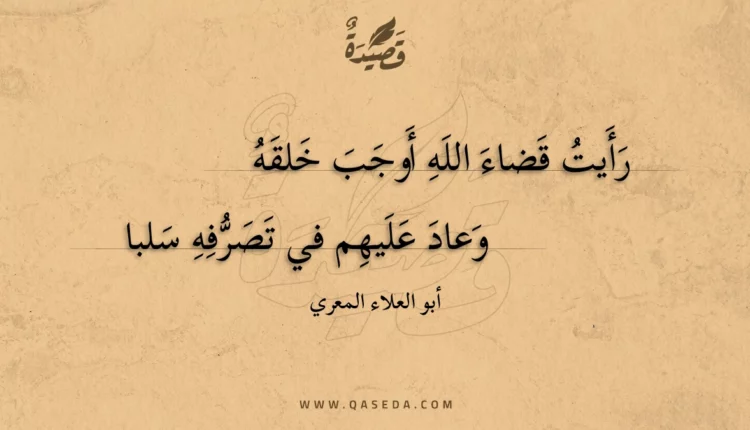 قَصِيْدَةٌ
رَأَيتُ قَضاءَ اللَهِ أَوجَبَ خَلقَهُ
وَعادَ عَلَيهِم في تَصَرُّفِهِ سَلبا
أبو العلاء المعري
WWW.QASEDA.COM